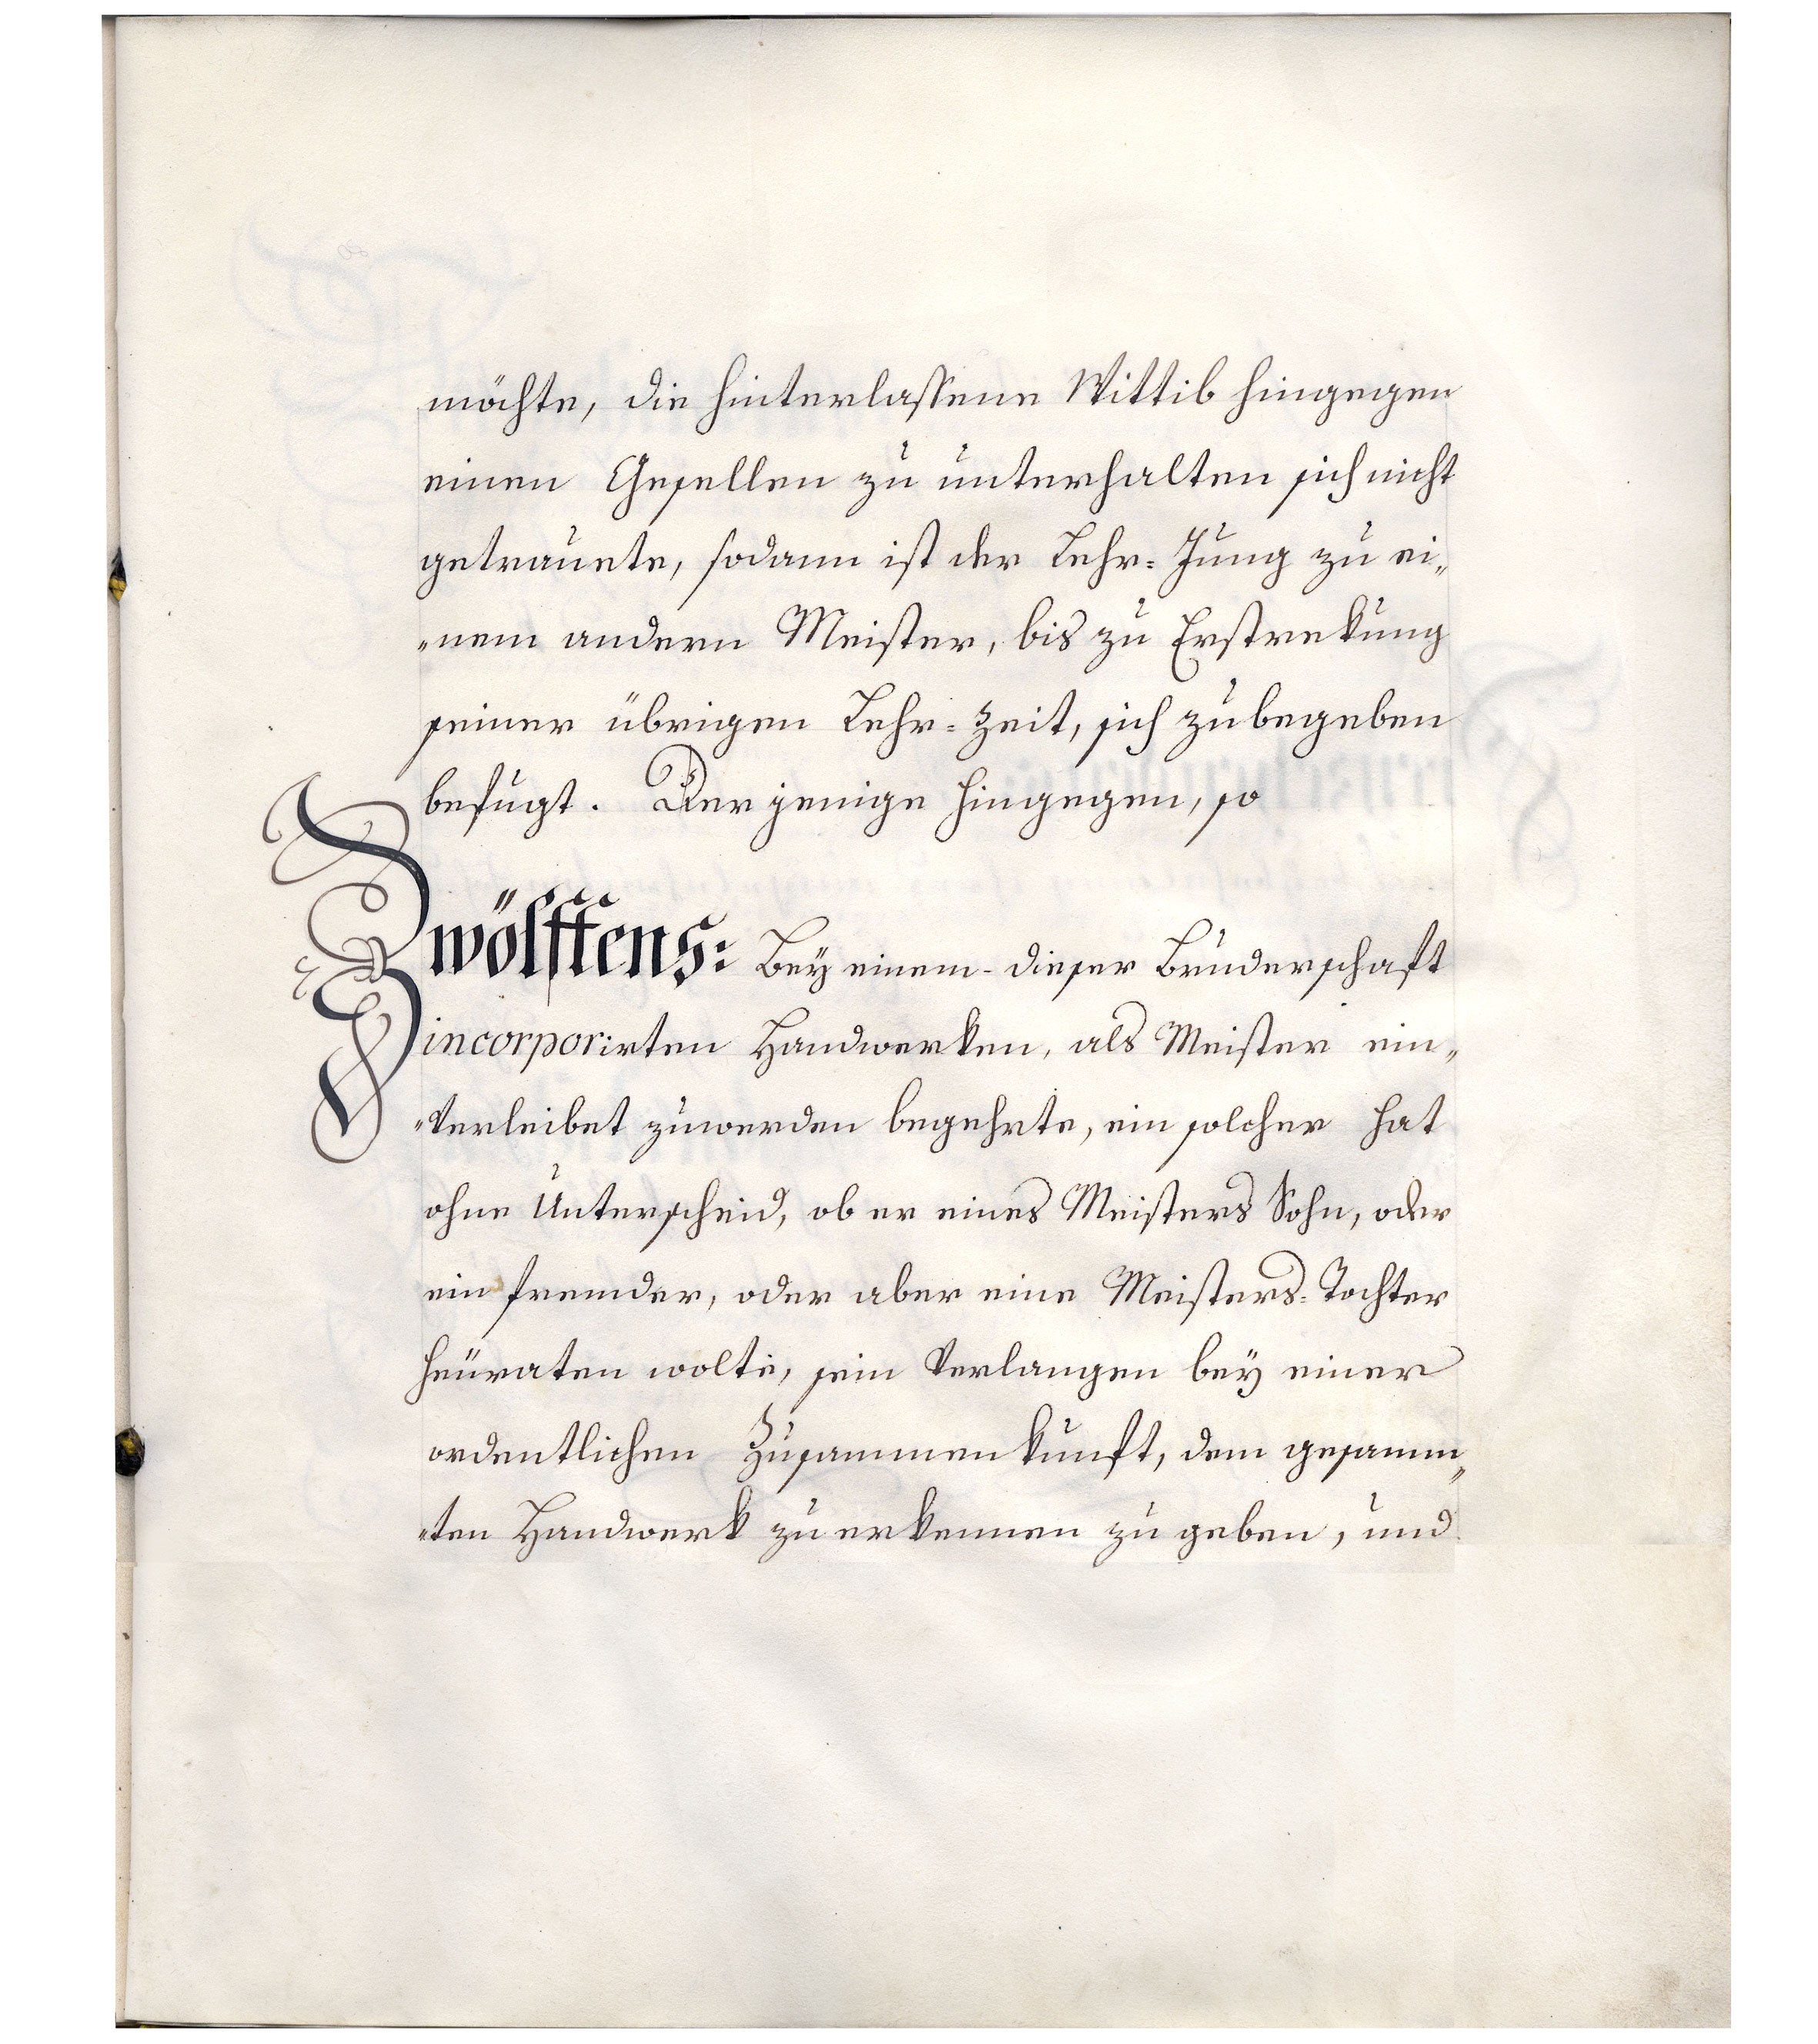 möchte, die hinterlassene Wittib hingegen
einen Gesellen zu unterhalten sich nicht
getrauete, sodann ist der Lehr-Jung zu ei„
„nem andern Meister, bis zu Erstrekung
seiner übrigen Lehr-Zeit, sich zubegeben
befugt. Der jenige hingegen, so
Zwölfftens: Bey einem- dieser Bruderschaft
incorporirten Handwerken, als Meister ein„
„Verleibet zuwerden begehrte, ein solcher hat
ohne Unterscheid, ob er eines Meisters Sohn, oder
ein fremder, oder aber eine Meisters-Tochter
heüraten wolte, sein Verlangen bey einer
ordentlichen Zusammenkunft, dem gesamm„
„ten Handwerk zu erkennen zu geben, und